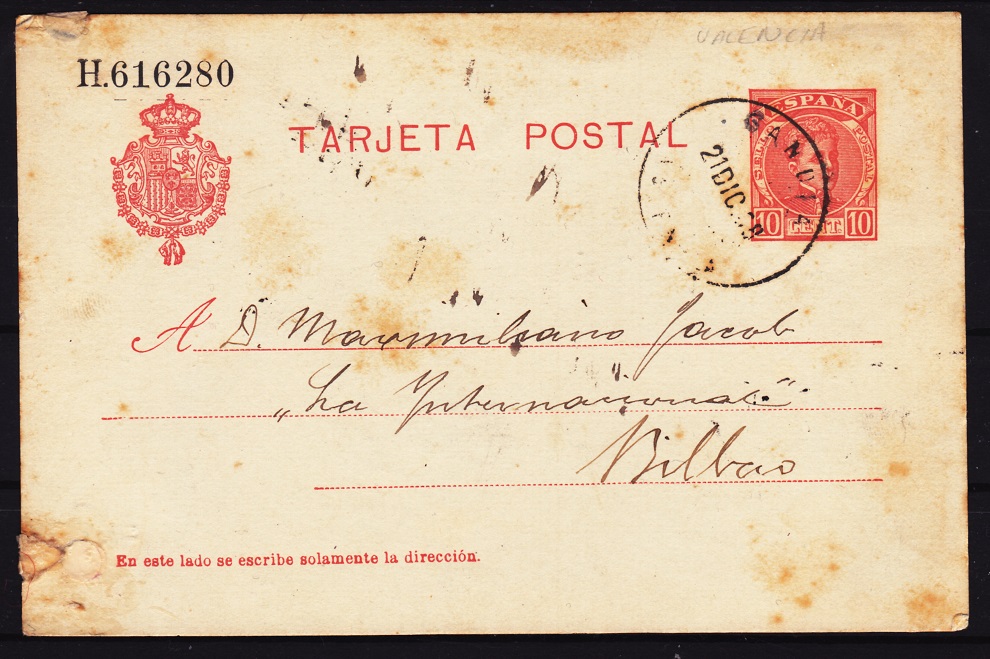 VALENCIA
H.616280
TARJETA POSTAL
ESPAÑA
POSTAL
10 CENT. 10
GANDIA
21 DIC.
A D. Maximiliano Jacob
„La Internacional"
Bilbao
En este lado se escribe solamente la dirección.